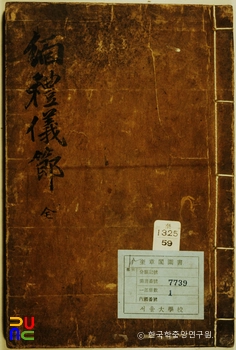 緬禮儀節 全
古
1325
59
奎章閣圖書
7739
1
서울大學校
ⓒ 한국학중앙연구원